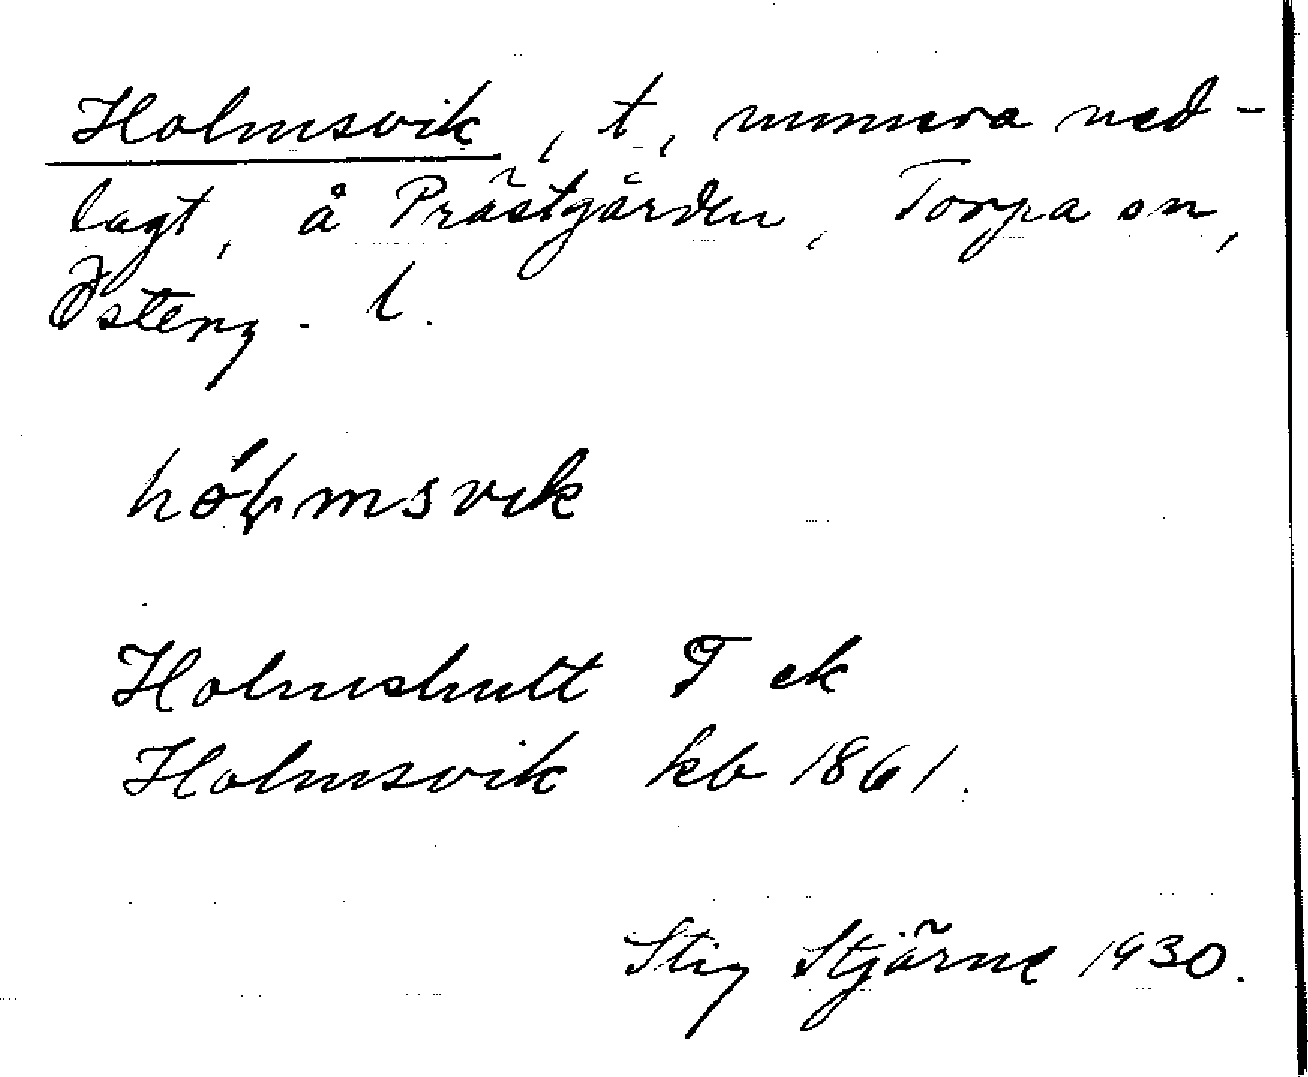 Holmsvik, t, numera ned-
lagt, å Prästgården, Torpa sn,
Österg. l.
Holmshult T ek
Holmsvik kb 1861.
Stig Stjärne 1930.